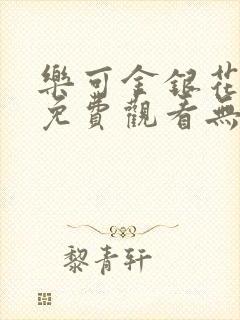 樂可金銀花
免費觀看無
黎青轩